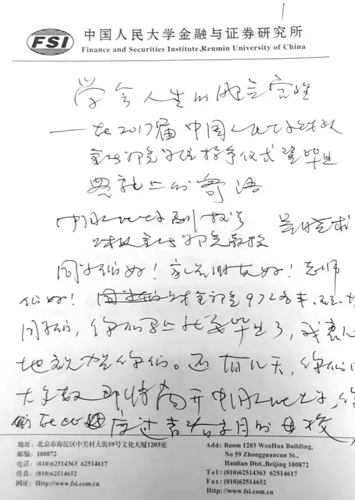 1
FSI
中国人民大学金融与证券研究所
Finance and Securities Institute,Renmin University of China
学会人生的
——在2017届中国人民大学财政
金融学院学位授予仪式暨毕业
典礼上的寄语
中国人民大学副校长 吴晓求
财政金融学院教授
同学们好!家长朋友好!老师
们好!财金学院972名
同学们,你们马上就要毕业了,我衷心
地祝贺你们。还有几天,你们
大多数即将离开中国人民大学,
在此度过青春岁月的母校
地址:北京市海淀区中关村大街59号文化大厦1203室
邮编:100872
电话:(010)62514363 62514617
传真:(010)62514652
网址:Http://www.fsi.com.cn
Add: Room 1203 WenHua Building,
No 59 Zhongguancun St.,
Haidian Dist.,Beijing 100872
Tel: (010)62514363 62514617
Fax: (010)62514652
Http://www.fsi.com.cn